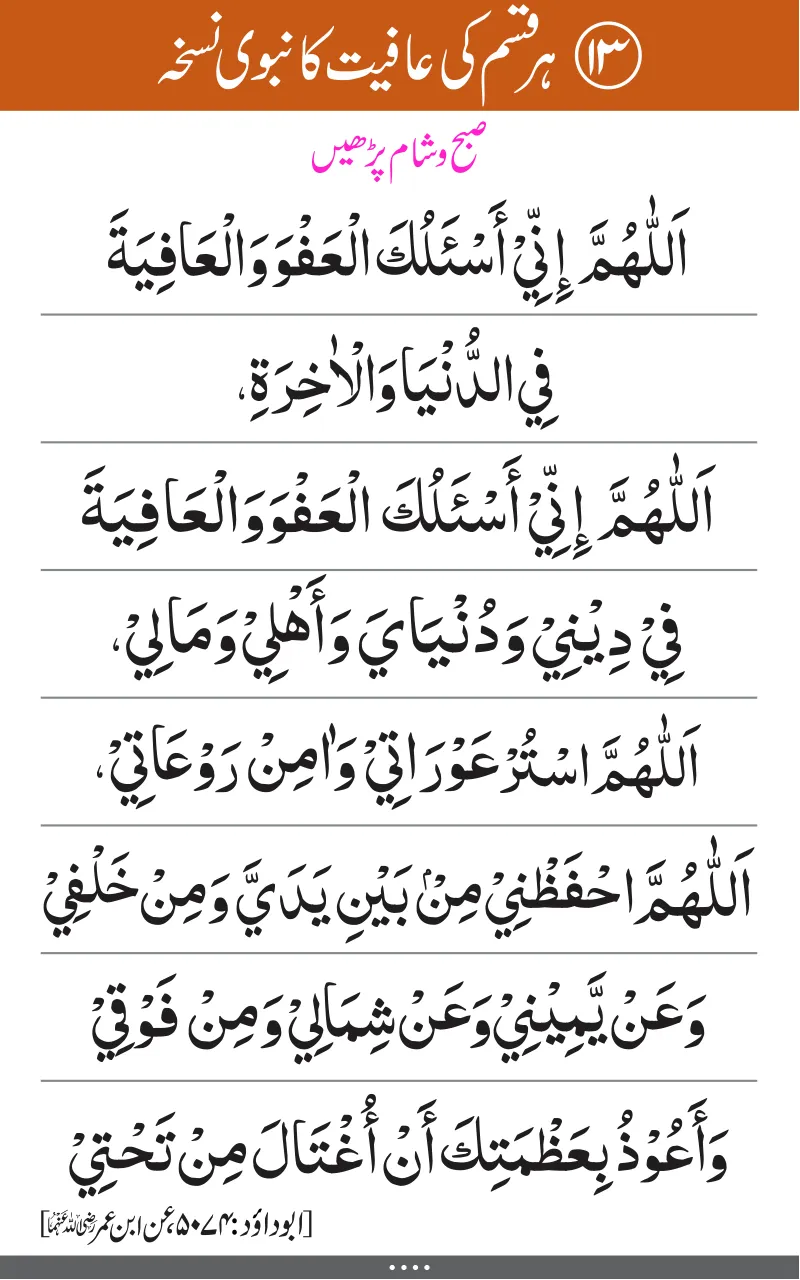 ۱۳ ہر قسم کی عافیت کا نبوی نسخہ
صبح و شام پڑھیں
اَللّٰهُمَّ إِنِّيْ أَسْئَلُكَ الْعَفْوَ وَالْعَافِيَةَ
فِي الدُّنْيَا وَالْاٰخِرَةِ،
اَللّٰهُمَّ إِنِّيْ أَسْئَلُكَ الْعَفْوَ وَالْعَافِيَةَ
فِيْ دِيْنِيْ وَدُنْيَايَ وَأَهْلِيْ وَمَالِيْ،
اَللّٰهُمَّ اسْتُرْ عَوْرَاتِيْ وَاٰمِنْ رَوْعَاتِيْ،
اَللّٰهُمَّ احْفَظْنِيْ مِنْۢ بَيْنِ يَدَيَّ وَمِنْ خَلْفِيْ
وَعَنْ يَّمِيْنِيْ وَعَنْ شِمَالِيْ وَمِنْ فَوْقِيْ
وَأَعُوْذُ بِعَظْمَتِكَ أَنْ أُغْتَالَ مِنْ تَحْتِيْ
[ابوداؤد: ۵۰۷۴، عن ابن عمر رضی اللہ عنہما]